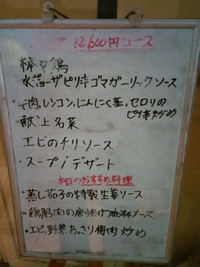 2,600円コース
棒々鶏
水ギョーザピリ辛ゴマガーリックソース
牛肉、レンコン、にんにく茎、セロリの
ピリ辛炒め
献上名菜
・エビのチリソース
・スープ/デザート
本日のおすすめ料理
・蒸し茄子の特製生姜ソース
・鶏肉の唐揚げ油淋ソース
・エビ、野菜あっさり梅肉炒め